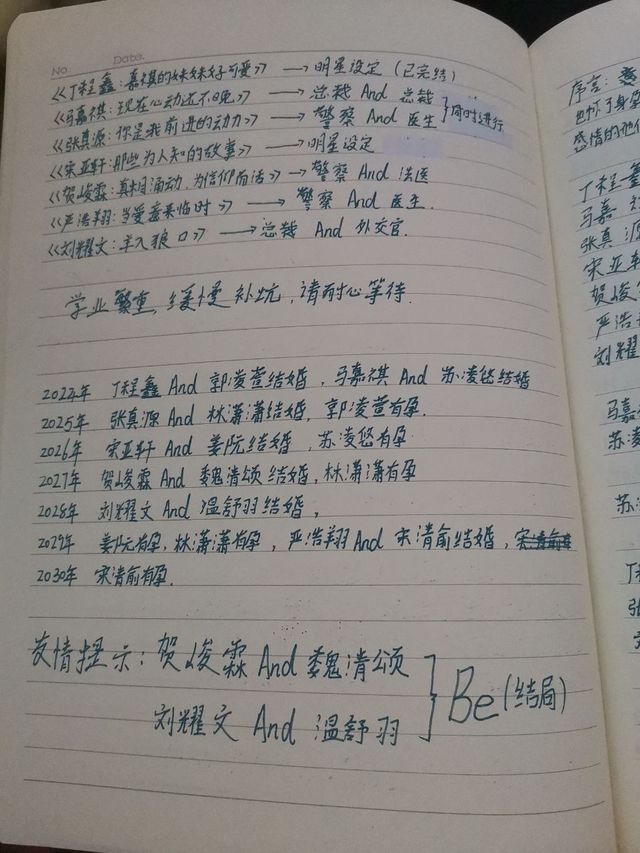 No.
Date.
《丁程鑫:嘉祺的妹妹好可爱》 → 明星设定 (已完结)
《马嘉祺:现在心动还不晚》 → 总裁 And 总裁
《张真源:你是我前进的动力》 → 警察 And 医生 同时进行
《宋亚轩:那些为人知的故事》 → 明星设定
《贺峻霖:真相涌动,为信仰而活》 → 警察 And 法医
《严浩翔:当爱意来临时》 → 警察 And 医生.
《刘耀文:羊入狼口》 → 总裁 And 外交官.
学业繁重,缓慢补坑,请耐心等待.
2024年 丁程鑫 And 郭凌萱结婚,马嘉祺 And 苏凌悠结婚
2025年 张真源 And 林潇潇结婚,郭凌萱有孕.
2026年 宋亚轩 And 姜阮结婚,苏凌悠有孕.
2027年 贺峻霖 And 魏清颂结婚,林潇潇有孕
2028年 刘耀文 And 温舒羽结婚,
2029年 姜阮有孕,林潇潇有孕,严浩翔And 宋清俞结婚,
2030年 宋清俞有孕.
友情提示:贺峻霖 And 魏清颂
刘耀文 And 温舒羽
Be(结局)
序言:
感情的他
丁程鑫
马嘉
张真源
宋亚
贺峻
严浩
刘耀
马嘉
苏凌